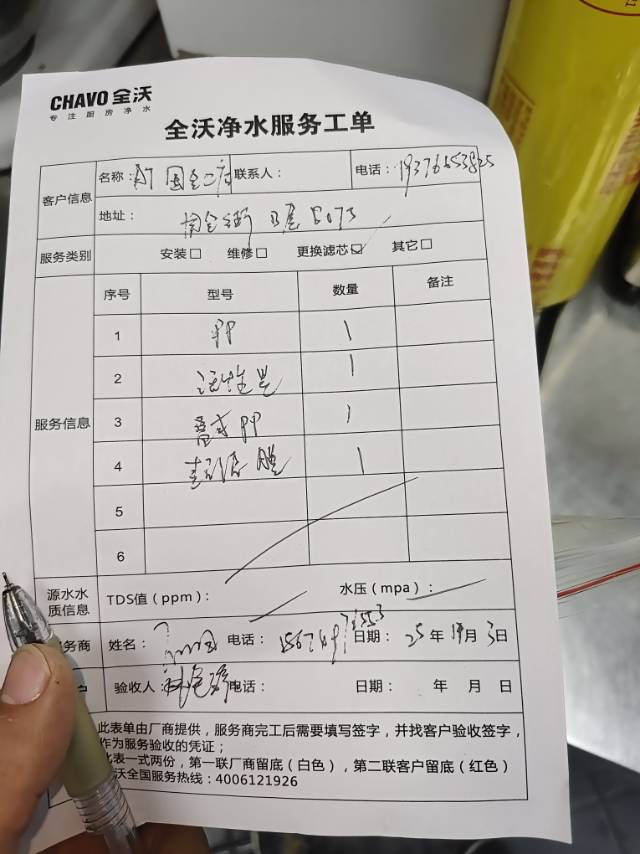 CHAVO 全沃
专注厨房净水
全沃净水服务工单
客户信息
名称：
联系人：
电话：
地址：
服务类别 安装☐ 维修☐ 更换滤芯☑ 其它☐
服务信息
序号 型号 数量 备注
1 PP 1
2 活性炭 1
3 叠式PP 1
4 超滤膜 1
5
6
源水水质信息 TDS值（ppm）： 水压（mpa）：
务商 姓名： 电话： 日期：25年 月3日
验收人： 电话： 日期： 年 月 日
此表单由厂商提供，服务商完工后需要填写签字，并找客户验收签字，
作为服务验收的凭证；
此表一式两份，第一联厂商留底（白色），第二联客户留底（红色）
沃全国服务热线：4006121926